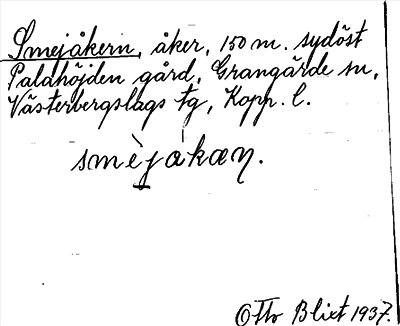 Smejåkern, åker, 150 m. sydöst
Paldhöjden gård, Grangärde sn,
Västerbergslags tg, Kopp. l.
smèjåkæɳ.
Otto Blixt 1937.